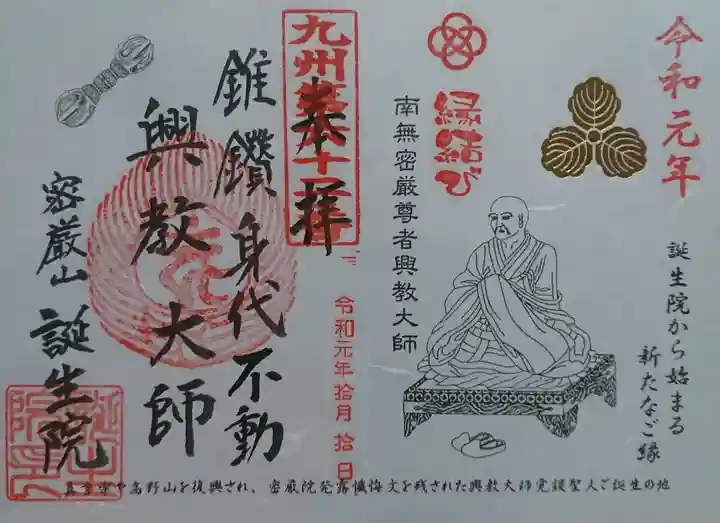 令和元年
誕生院から始まる
新たなご縁
縁結び
南無密厳尊者興教大師
九州
奉拝
令和元年拾月拾日
錐鑽身代不動
興教大師
密厳山
誕生院
真言宗や高野山を復興され、密厳院発露懺悔文を残された興教大師覚鑁聖人ご誕生の地